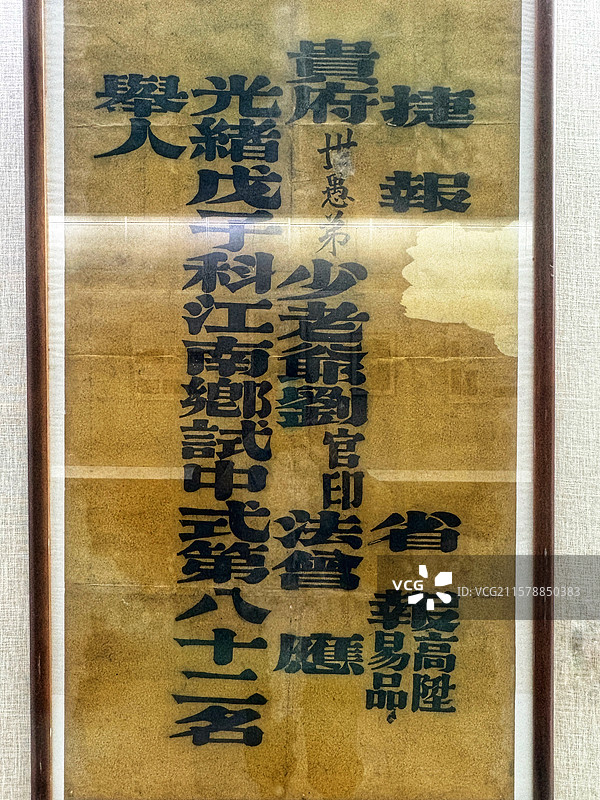 捷報
省報高陞
易品
貴府世愚弟少老爺劉官印法曾應
光緒戊子科江南鄉試中式第八十二名
舉人
VCG
ID:VCG211578850383